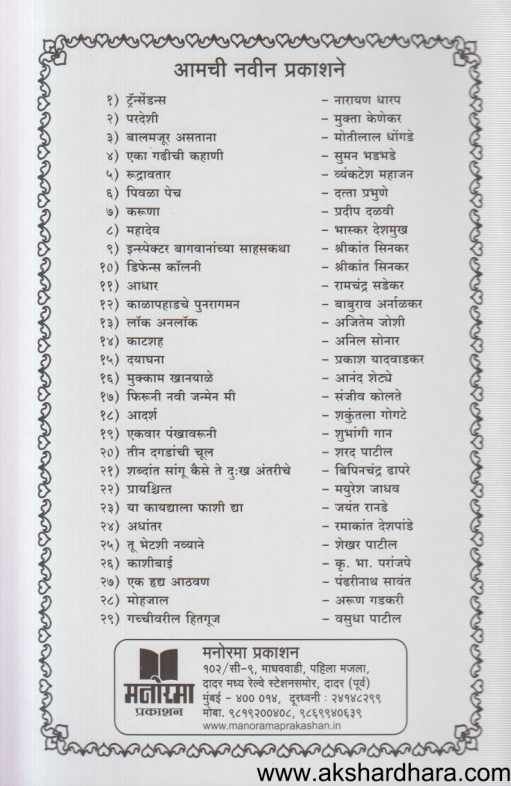 आमची नवीन प्रकाशने
१) ट्रॅन्सेंडन्स – नारायण धारप
२) परदेशी – मुक्ता केणेकर
३) बालमजूर असताना – मोतीलाल धोंगडे
४) एका गढीची कहाणी – सुमन भडभडे
५) रूद्रावतार – व्यंकटेश महाजन
६) पिवळा पेच – दत्ता प्रभुणे
७) करूणा – प्रदीप दळवी
८) महादेव – भास्कर देशमुख
९) इन्स्पेक्टर बागवानांच्या साहसकथा – श्रीकांत सिनकर
१०) डिफेन्स कॉलनी – श्रीकांत सिनकर
११) आधार – रामचंद्र सडेकर
१२) काळापहाडचे पुनरागमन – बाबुराव अर्नाळकर
१३) लॉक अनलॉक – अजितेम जोशी
१४) काटशह – अनिल सोनार
१५) दयाघना – प्रकाश यादवाडकर
१६) मुक्काम खानयाळे – आनंद शेट्ये
१७) फिरूनी नवी जन्मेन मी – संजीव कोलते
१८) आदर्श – शकुंतला गोगटे
१९) एकवार पंखावरूनी – शुभांगी गान
२०) तीन दगडांची चूल – शरद पाटील
२१) शब्दांत सांगू कैसे ते दुःख अंतरीचे – बिपिनचंद्र ढापरे
२२) प्रायश्चित्त – मयुरेश जाधव
२३) या कायद्याला फाशी द्या – जयंत रानडे
२४) अधांतर – रमाकांत देशपांडे
२५) तू भेटशी नव्याने – शेखर पाटील
२६) काशीबाई – कृ. भा. परांजपे
२७) एक हृद्य आठवण – पंढरीनाथ सावंत
२८) मोहजाल – अरूण गडकरी
२९) गच्चीवरील हितगूज – वसुधा पाटील
मनोरमा
प्रकाशन
मनोरमा प्रकाशन
१०२/सी-९, माधववाडी, पहिला मजला,
दादर मध्य रेल्वे स्टेशनसमोर, दादर (पूर्व)
मुंबई – ४०० ०१४, दूरध्वनी : २४१४८२९९
मोबा. ९८१९२००४०८, ९८६९९४०६३९
www.manoramaprakashan.in
www.akshardhara.com